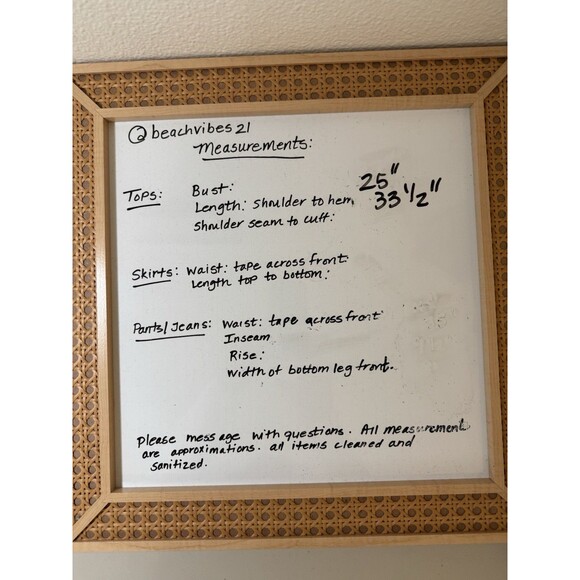 @beachvibes21
Measurements:
Tops: Bust: 25"
Length: Shoulder to hem 33 1/2"
Shoulder seam to cuff:
Skirts: Waist: tape across front:
Length top to bottom:
Pants/Jeans: Waist: tape across front:
Inseam
Rise:
Width of bottom leg front.
Please message with questions. All measurement
are approximations. all items cleaned and
sanitized.